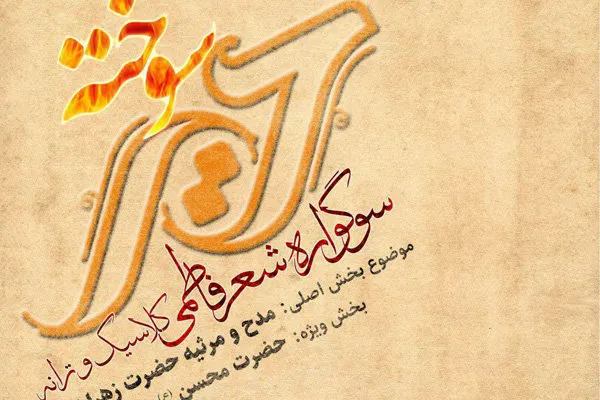 سوخته
سوگواره شعر فاطمی کلاسیک و ترانه
موضوع بخش اصلی: مدح و مرثیه حضرت زهرا
بخش ویژه: حضرت محسن (ع)